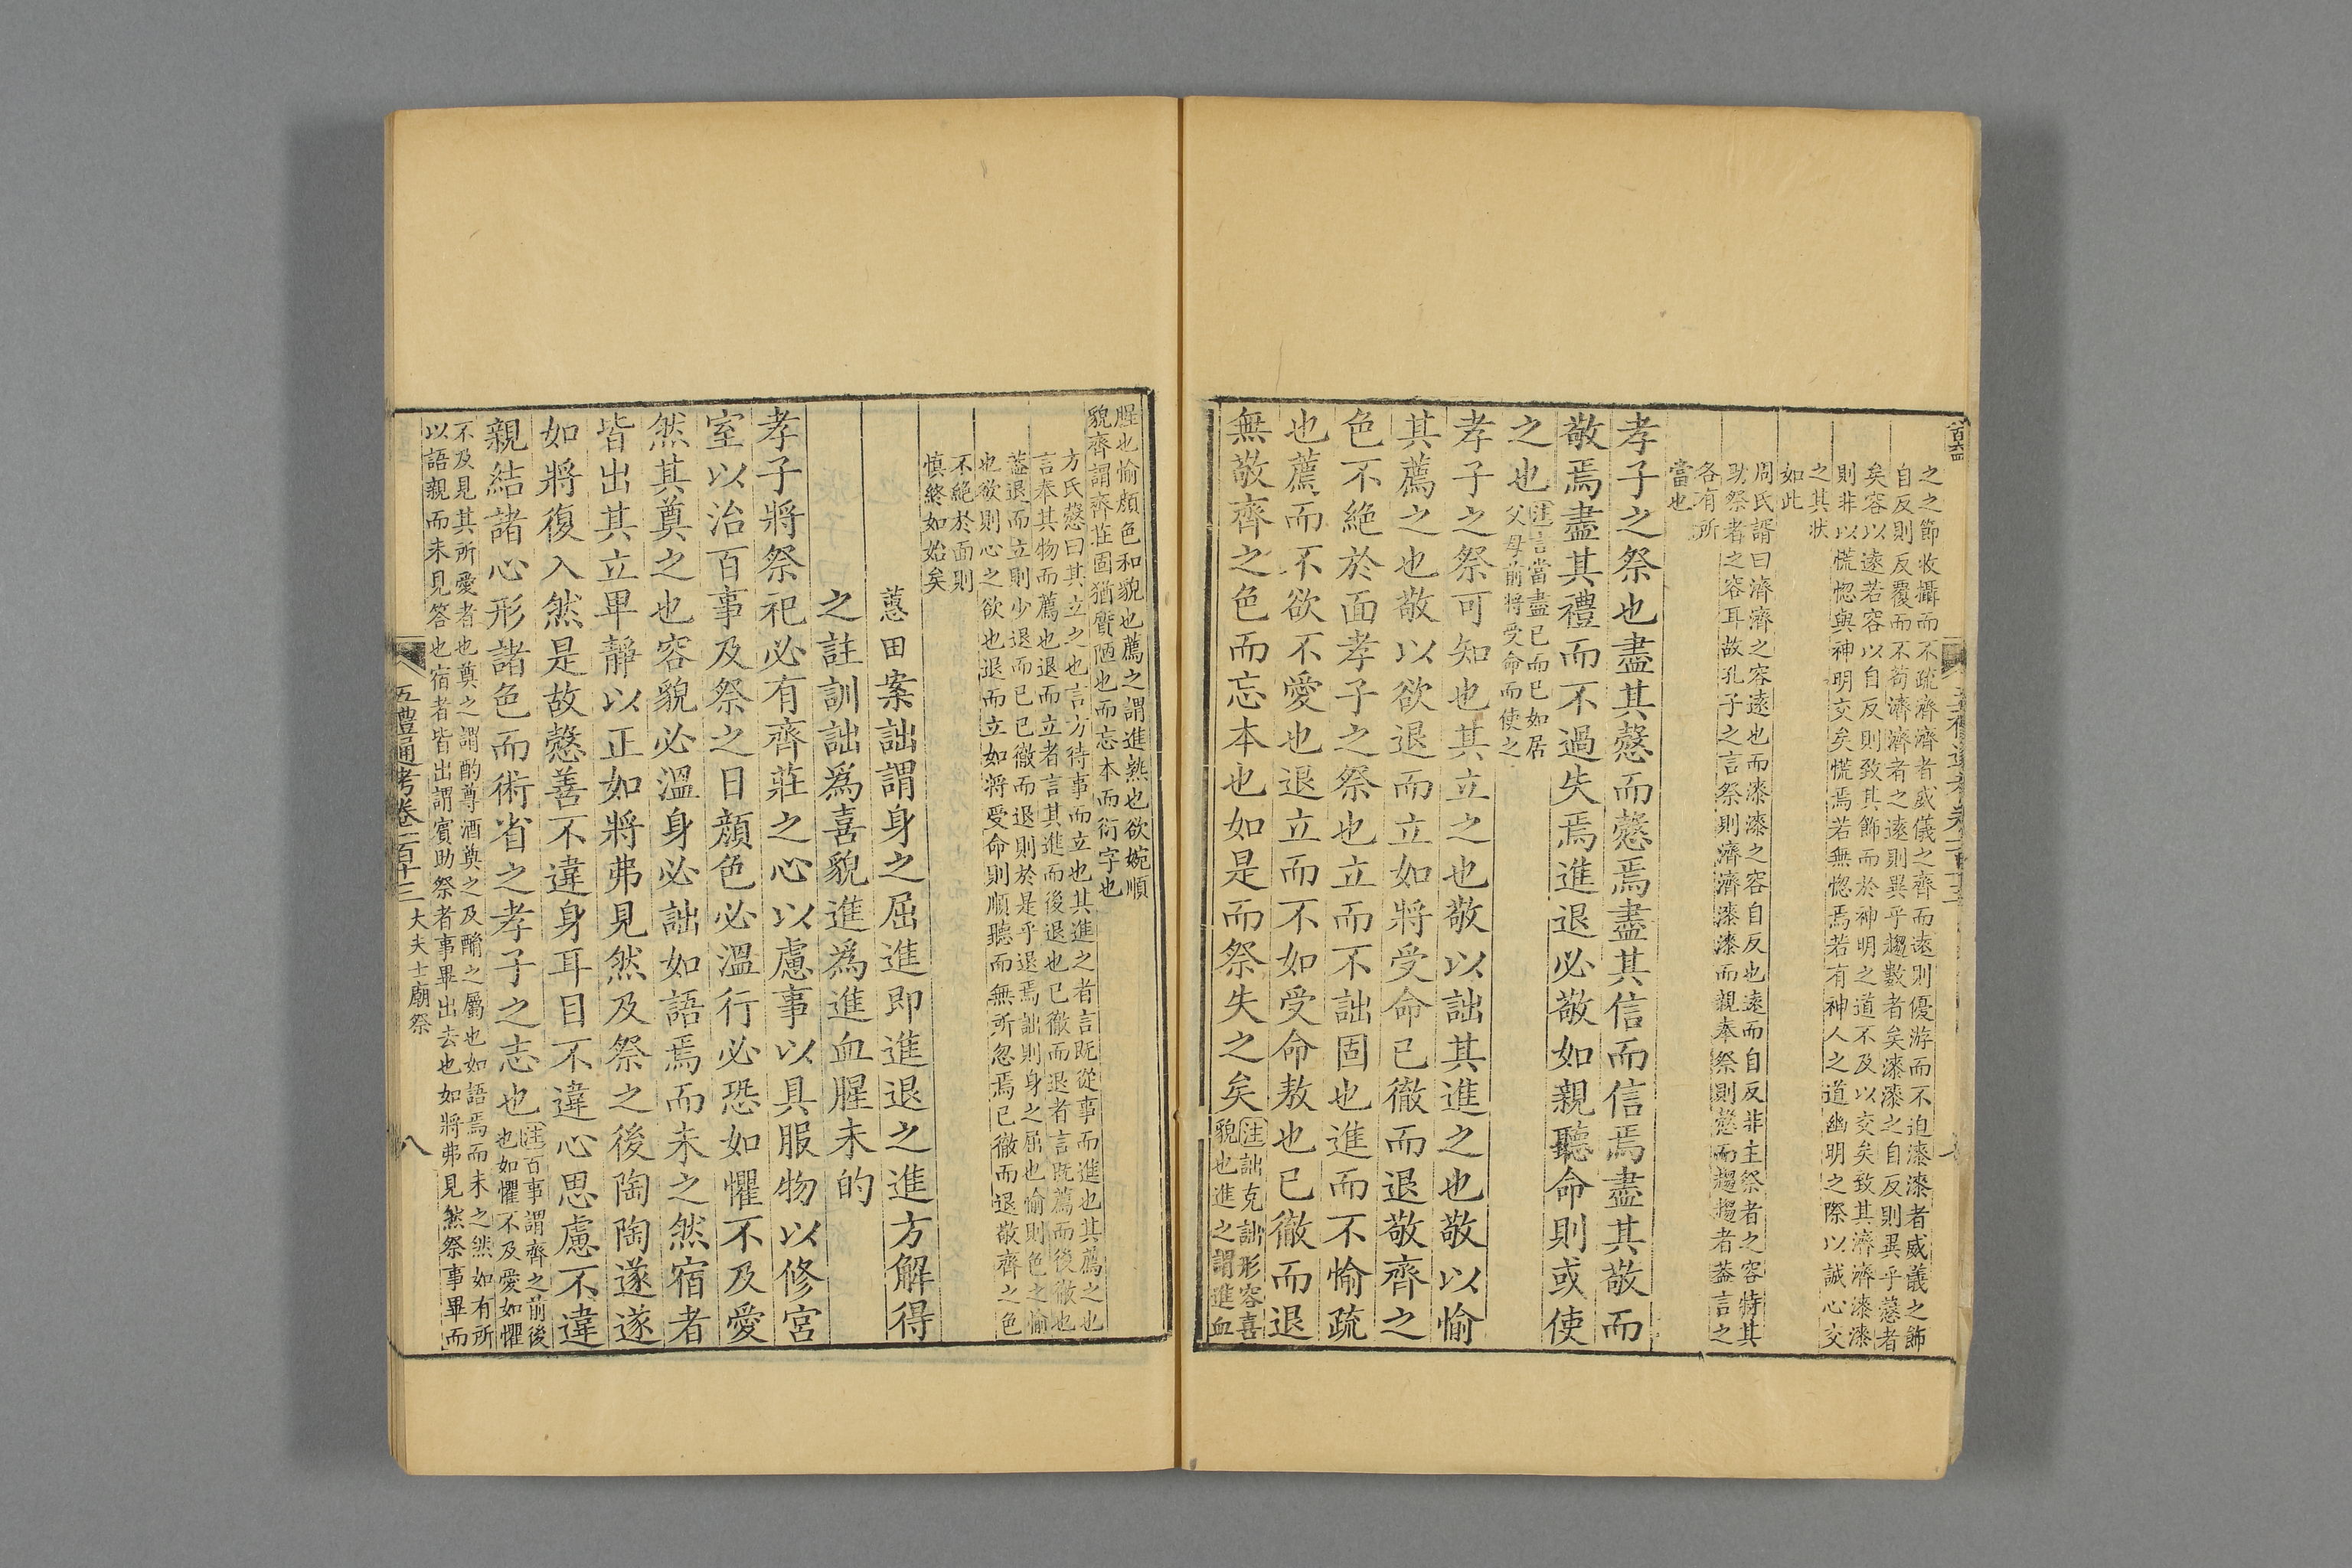 之之節收攝而不疏濟濟者威儀之齊而遠則優游而不迫漆漆者威儀之飾
自反則反覆而不苟濟濟者之遠則異乎趨數者矣漆漆之自反則異乎慤者
矣容以遠若容以自反則致其飾而於神明之道不及以交矣致其濟濟漆漆
則非以慌惚與神明交矣慌焉若無惚焉若有神人之道幽明之際以誠心交
之其狀
如此
周氏諝曰濟濟之容遠也而漆漆之容自反也遠而自反非主祭者之容特其
助祭者之容耳故孔子之言祭則濟濟漆漆而親奉祭則慤而趨趨者葢言之
各有所
當也
孝子之祭也盡其慤而慤焉盡其信而信焉盡其敬而
敬焉盡其禮而不過失焉進退必敬如親聽命則或使
之也
注言當盡已而已如居
父母前將受命而使之
孝子之祭可知也其立之也敬以詘其進之也敬以愉
其薦之也敬以欲退而立如將受命已徹而退敬齊之
色不絶於面孝子之祭也立而不詘固也進而不愉疏
也薦而不欲不愛也退立而不如受命敖也已徹而退
無敬齊之色而忘本也如是而祭失之矣
注詘充詘形容喜
貌也進之謂進血
腥也愉顔色和貌也薦之謂進熟也欲婉順
貌齊謂齊莊固猶質陋也而忘本而衍字也
方氏慤曰其立之也言方待事而立也其進之者言既從事而進也其薦之也
言奉其物而薦也退而立者言其進而後退也已徹而退者言既薦而後徹也
葢退而立則少退而已已徹而退則於是乎退焉詘則身之屈也愉則色之愉
也欲則心之欲也退而立如將受命則順聽而無所忽焉已徹而退敬齊之色
不絶於面則
慎終如始矣
蕙田案詘謂身之屈進即進退之進方解得
之註訓詘爲喜貌進爲進血腥未的
孝子將祭祀必有齊莊之心以慮事以具服物以修宮
室以治百事及祭之日顔色必溫行必恐如懼不及愛
然其奠之也容貌必溫身必詘如語焉而未之然宿者
皆出其立卑靜以正如將弗見然及祭之後陶陶遂遂
如將復入然是故慤善不違身耳目不違心思慮不違
親結諸心形諸色而術省之孝子之志也
注百事謂齊之前後
也如懼不及愛如懼
不及見其所愛者也奠之謂酌尊酒奠之及酳之屬也如語焉而未之然如有所
以語親而未見答也宿者皆出謂賓助祭者事畢出去也如將弗見然祭事畢而
五禮通考卷一百十三 大夫士廟祭
八